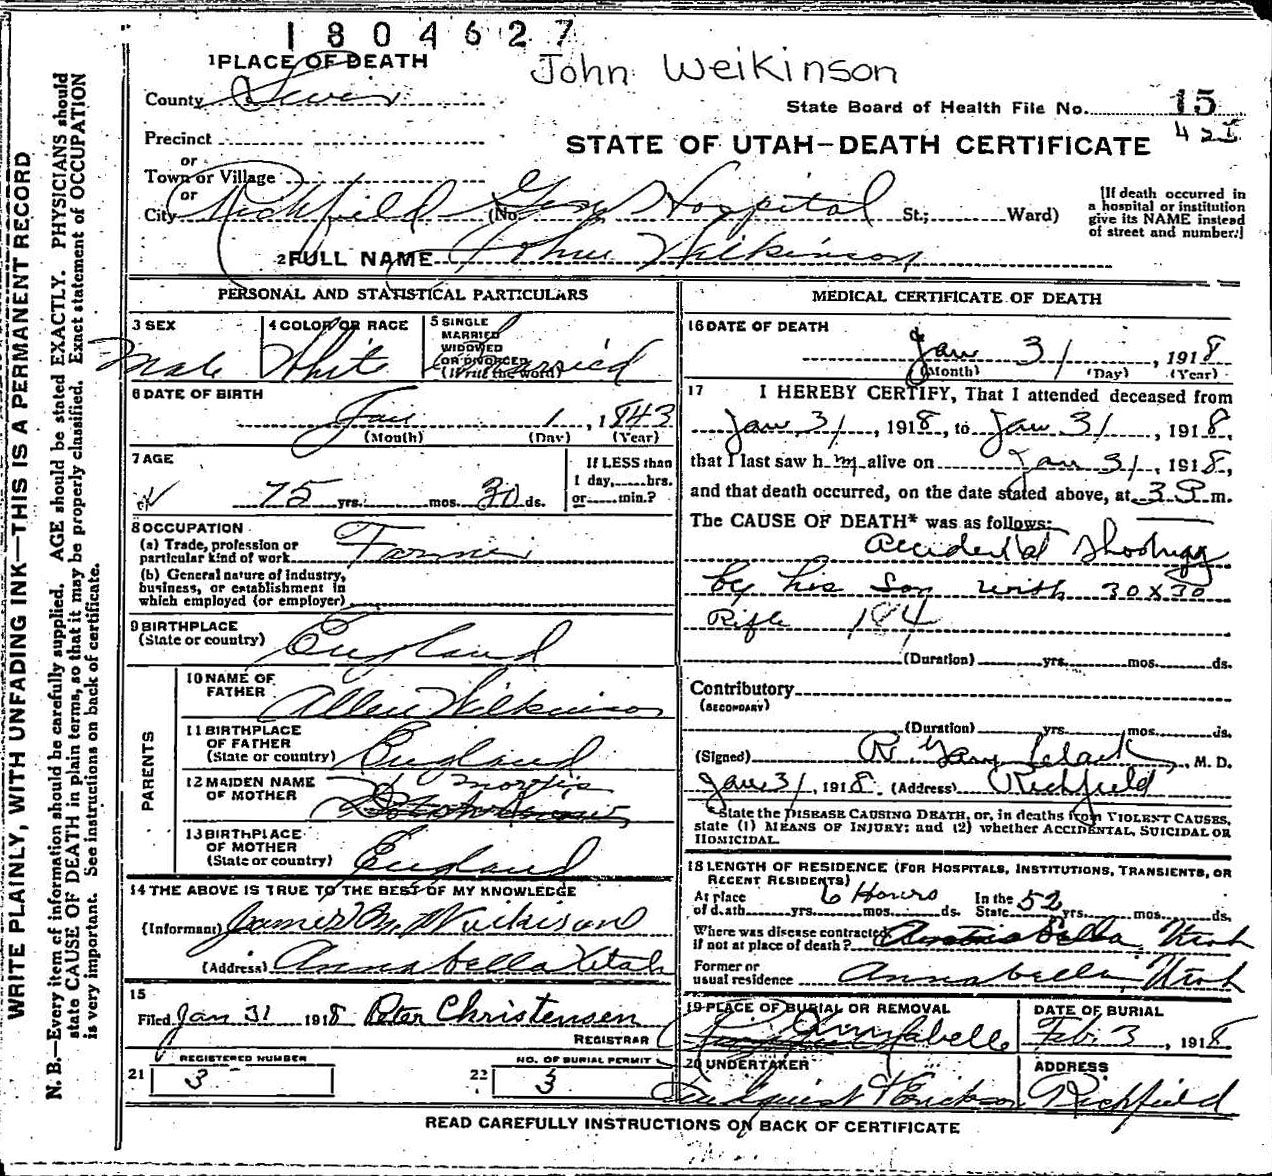 1804627
John Weikinson
1 PLACE OF DEATH
County Sevier
State Board of Health File No. 15
Precinct
STATE OF UTAH—DEATH CERTIFICATE
or
Town or Village
or
City Richfield (No. Gen Hospital St.; Ward)
[If death occurred in
a hospital or institution
give its NAME instead
of street and number.]
2 FULL NAME John Wilkinson
PERSONAL AND STATISTICAL PARTICULARS
3 SEX
Male
4 COLOR OR RACE
White
5 SINGLE
MARRIED
WIDOWED
OR DIVORCED
(Write the word)
Married
6 DATE OF BIRTH
Jan 1, 1843
(Month) (Day) (Year)
7 AGE
75 yrs. mos. 30 ds.
If LESS than
1 day, hrs.
or min.?
8 OCCUPATION
(a) Trade, profession or
particular kind of work Farmer
(b) General nature of industry,
business, or establishment in
which employed (or employer)
9 BIRTHPLACE
(State or country) England
PARENTS
10 NAME OF
FATHER Allen Wilkinson
11 BIRTHPLACE
OF FATHER
(State or country) England
12 MAIDEN NAME
OF MOTHER
13 BIRTHPLACE
OF MOTHER
(State or country) England
14 THE ABOVE IS TRUE TO THE BEST OF MY KNOWLEDGE
(Informant) James M. Wilkison
(Address) Annabella Utah
15
Filed Jan 31 1918 Peter Christensen
REGISTRAR
REGISTERED NUMBER
21 3
NO. OF BURIAL PERMIT
22 3
MEDICAL CERTIFICATE OF DEATH
16 DATE OF DEATH
Jan 31, 1918
(Month) (Day) (Year)
17 I HEREBY CERTIFY, That I attended deceased from
Jan 31, 1918, to Jan 31, 1918,
that I last saw him alive on Jan 31, 1918,
and that death occurred, on the date stated above, at 3 P. m.
The CAUSE OF DEATH* was as follows:
Accidental Shooting
by his Son with 30x30
Rifle 184
(Duration) yrs. mos. ds.
Contributory
(SECONDARY)
(Duration) yrs. mos. ds.
(Signed) R. Gary Clark, M. D.
Jan 31, 1918. (Address) Richfield
*State the DISEASE CAUSING DEATH, or, in deaths from VIOLENT CAUSES,
state (1) MEANS OF INJURY; and (2) whether ACCIDENTAL, SUICIDAL OR
HOMICIDAL.
18 LENGTH OF RESIDENCE (FOR HOSPITALS, INSTITUTIONS, TRANSIENTS, OR
RECENT RESIDENTS)
At place
of death yrs. mos. ds. 6 Hours In the
State 52 yrs. mos. ds.
Where was disease contracted
if not at place of death? Annabella, Utah
Former or
usual residence Annabella, Utah
19 PLACE OF BURIAL OR REMOVAL
Annabelle
DATE OF BURIAL
Feb. 3, 1918
20 UNDERTAKER
& Erickson
ADDRESS
Richfield
READ CAREFULLY INSTRUCTIONS ON BACK OF CERTIFICATE
WRITE PLAINLY, WITH UNFADING INK—THIS IS A PERMANENT RECORD
N. B.—Every item of information should be carefully supplied. AGE should be stated EXACTLY. PHYSICIANS should
state CAUSE OF DEATH in plain terms, so that it may be properly classified. Exact statement of OCCUPATION
is very important. See instructions on back of certificate.